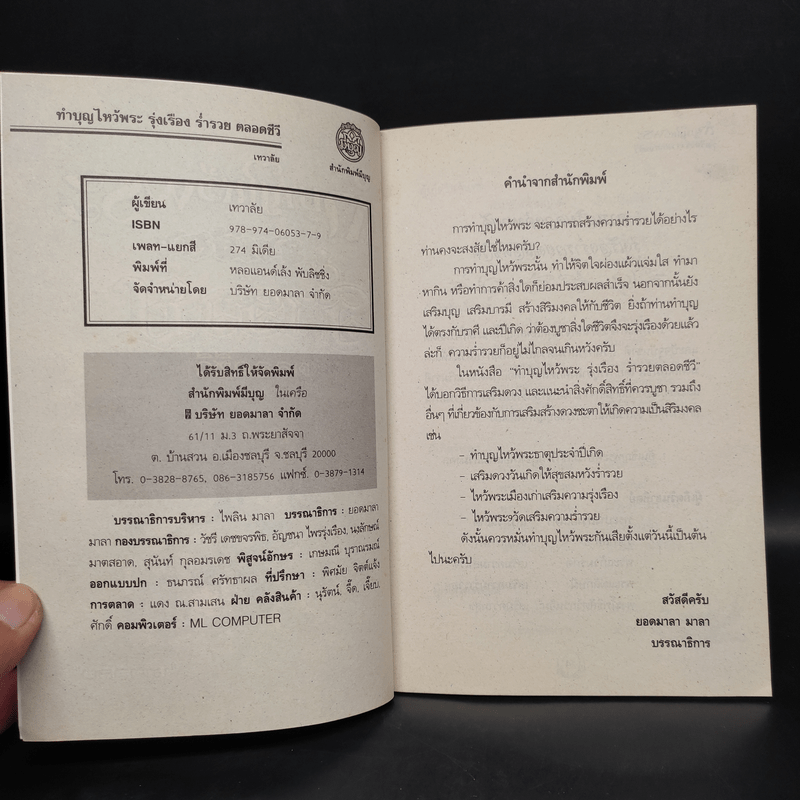 ทำบุญไหว้พระ รุ่งเรือง ร่ำรวย ตลอดชีวี
เทวาลัย
สำนักพิมพ์มีบุญ
ผู้เขียน เทวาลัย
ISBN 978-974-06053-7-9
เพลท-แยกสี 274 มิเดีย
พิมพ์ที่ หลอแอนด์เล้ง พับลิชชิ่ง
จัดจำหน่ายโดย บริษัท ยอดมาลา จำกัด
ได้รับสิทธิ์ให้จัดพิมพ์
สำนักพิมพ์มีบุญ ในเครือ
บริษัท ยอดมาลา จำกัด
61/11 ม.3 ถ.พระยาสัจจา
ต. บ้านสวน อ.เมืองชลบุรี จ.ชลบุรี 20000
โทร. 0-3828-8765, 086-3185756 แฟกซ์. 0-3879-1314
บรรณาธิการบริหาร : ไพลิน มาลา บรรณาธิการ : ยอดมาลา
มาลา กองบรรณาธิการ : วัชรี เดชขจรพิธ, อัญชนา ไพรรุ่งเรือง, นงลักษณ์
มาตสอาด, สุนันท์ กุลอมรเดช พิสูจน์อักษร : เกษมณี บุราณรมณ์
ออกแบบปก : ธนภรณ์ ศรัทธาผล ที่ปรึกษา : พิศมัย จิตต์แจ้ง
การตลาด : แดง ณ.สามเสน ฝ่าย คลังสินค้า : นุรัตน์, จี๊ด, เจี๊ยบ,
ศักดิ์ คอมพิวเตอร์ : ML COMPUTER
คำนำจากสำนักพิมพ์
การทำบุญไหว้พระ จะสามารถสร้างความร่ำรวยได้อย่างไร
ท่านคงจะสงสัยใช่ไหมครับ?
การทำบุญไหว้พระนั้น ทำให้จิตใจผ่องแผ้วแจ่มใส ทำมา
หากิน หรือทำการค้าสิ่งใดก็ย่อมประสบผลสำเร็จ นอกจากนั้นยัง
เสริมบุญ เสริมบารมี สร้างสิริมงคลให้กับชีวิต ยิ่งถ้าท่านทำบุญ
ได้ตรงกับราศี และปีเกิด ว่าต้องบูชาสิ่งใดชีวิตจึงจะรุ่งเรืองด้วยแล้ว
ล่ะก็ ความร่ำรวยก็อยู่ไม่ไกลจนเกินหวังครับ
ในหนังสือ "ทำบุญไหว้พระ รุ่งเรือง ร่ำรวยตลอดชีวี"
ได้บอกวิธีการเสริมดวง และแนะนำสิ่งศักดิ์สิทธิ์ที่ควรบูชา รวมถึง
อื่นๆ ที่เกี่ยวข้องกับการเสริมสร้างดวงชะตาให้เกิดความเป็นสิริมงคล
เช่น
- ทำบุญไหว้พระธาตุประจำปีเกิด
- เสริมดวงวันเกิดให้สุขสมหวังร่ำรวย
- ไหว้พระเมืองเก่าเสริมความรุ่งเรือง
- ไหว้พระ๙วัดเสริมความร่ำรวย
ดังนั้นควรหมั่นทำบุญไหว้พระกันเสียตั้งแต่วันนี้เป็นต้น
ไปนะครับ
สวัสดีครับ
ยอดมาลา มาลา
บรรณาธิการ